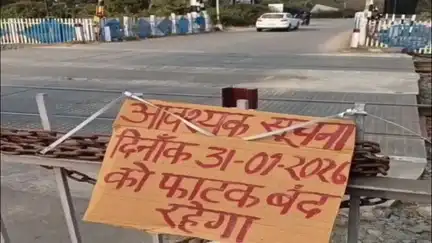 आवश्यक सूचना
दिनाँक 31-01-2026
को फाटक बंद
रहेगा